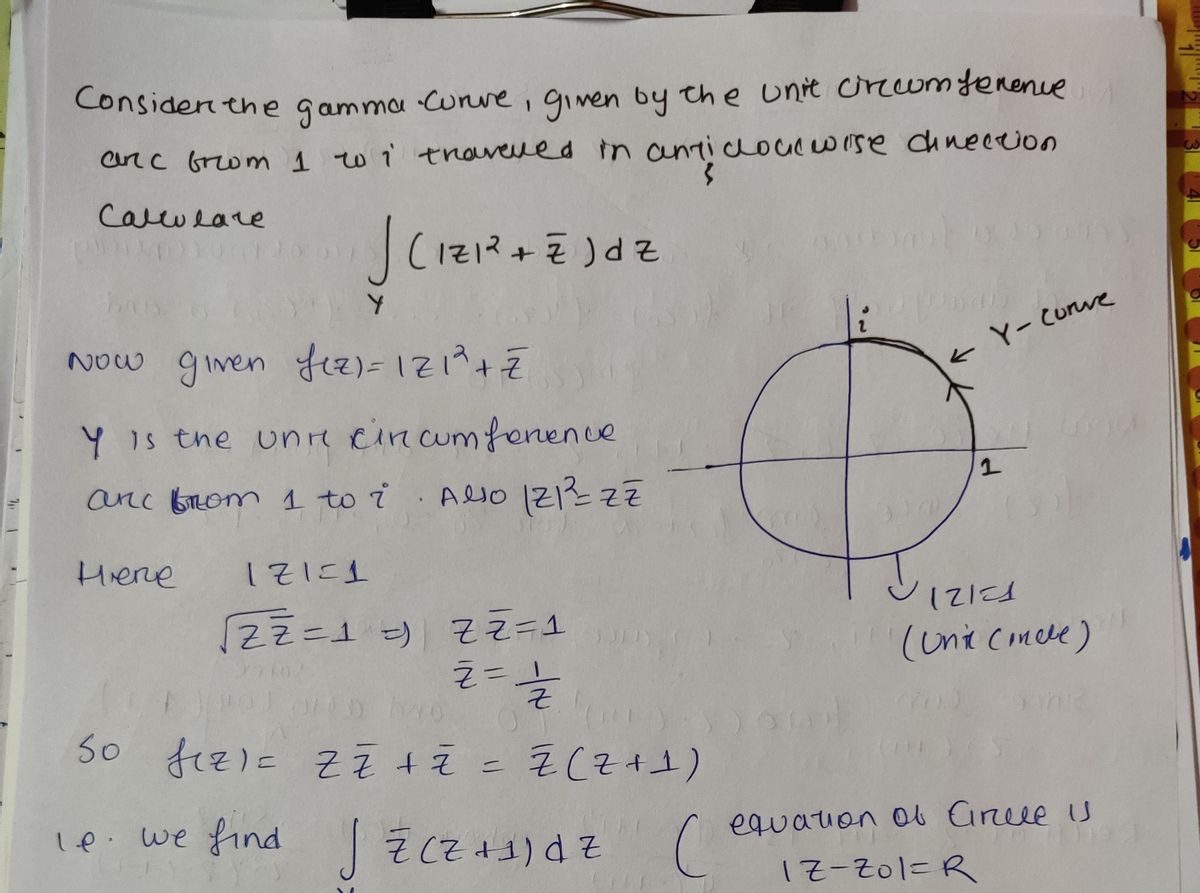 Consider the gamma curve, given by the unit circumference
arc from 1 to i travelled in anticlockwise direction
Calculate
∫γ (|z|² + z̄) dz
Now given f(z) = |z|² + z̄
i
γ - curve
γ is the unit circumference
arc from 1 to i . Also |z|² = z z̄
1
Here |z| = 1
√z z̄ = 1 ⇒ z z̄ = 1
z̄ = 1/z
|z| = 1
(Unit Circle)
So f(z) = z z̄ + z̄ = z̄ (z+1)
i.e. we find ∫ z̄ (z+1) dz ( equation of Circle is
|z - z0| = R